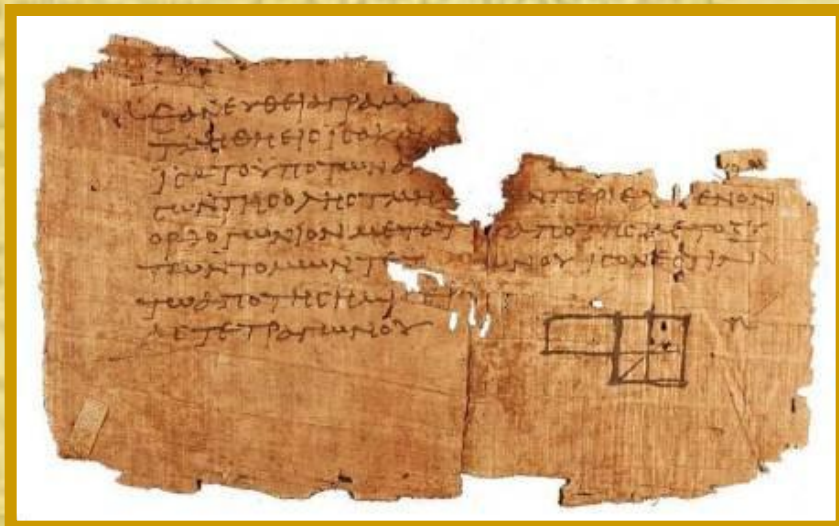 ΕΑΝΕΥΘΕΙΑΓΡΑΜΜ
ΤΜΗΘΗΕΙϹΙϹΑΚΑΙ
ΙϹΑΤΟΥΠΟΤΩΝΑ
ϹΩΝΤΗϹΟΛΗϹΤΜΗ ΝΠΕΡΙΕΧ ΜΕΝΟΝ
ΟΡΘΟΓΩΝΙΟΝΜΕΤΑΤ ΑΠΟΤΗϹΜΕΤΟΞΥ
ΤΩΝΤΟΜΩΝΤΕΤ ΩΝΟΥΙϹΟΝΕϹΤΙΝ
ΤΩΑΠΟΤΗϹΗΜΙ
ΑϹΤΕΤΡΑΓΩΝΟΥ